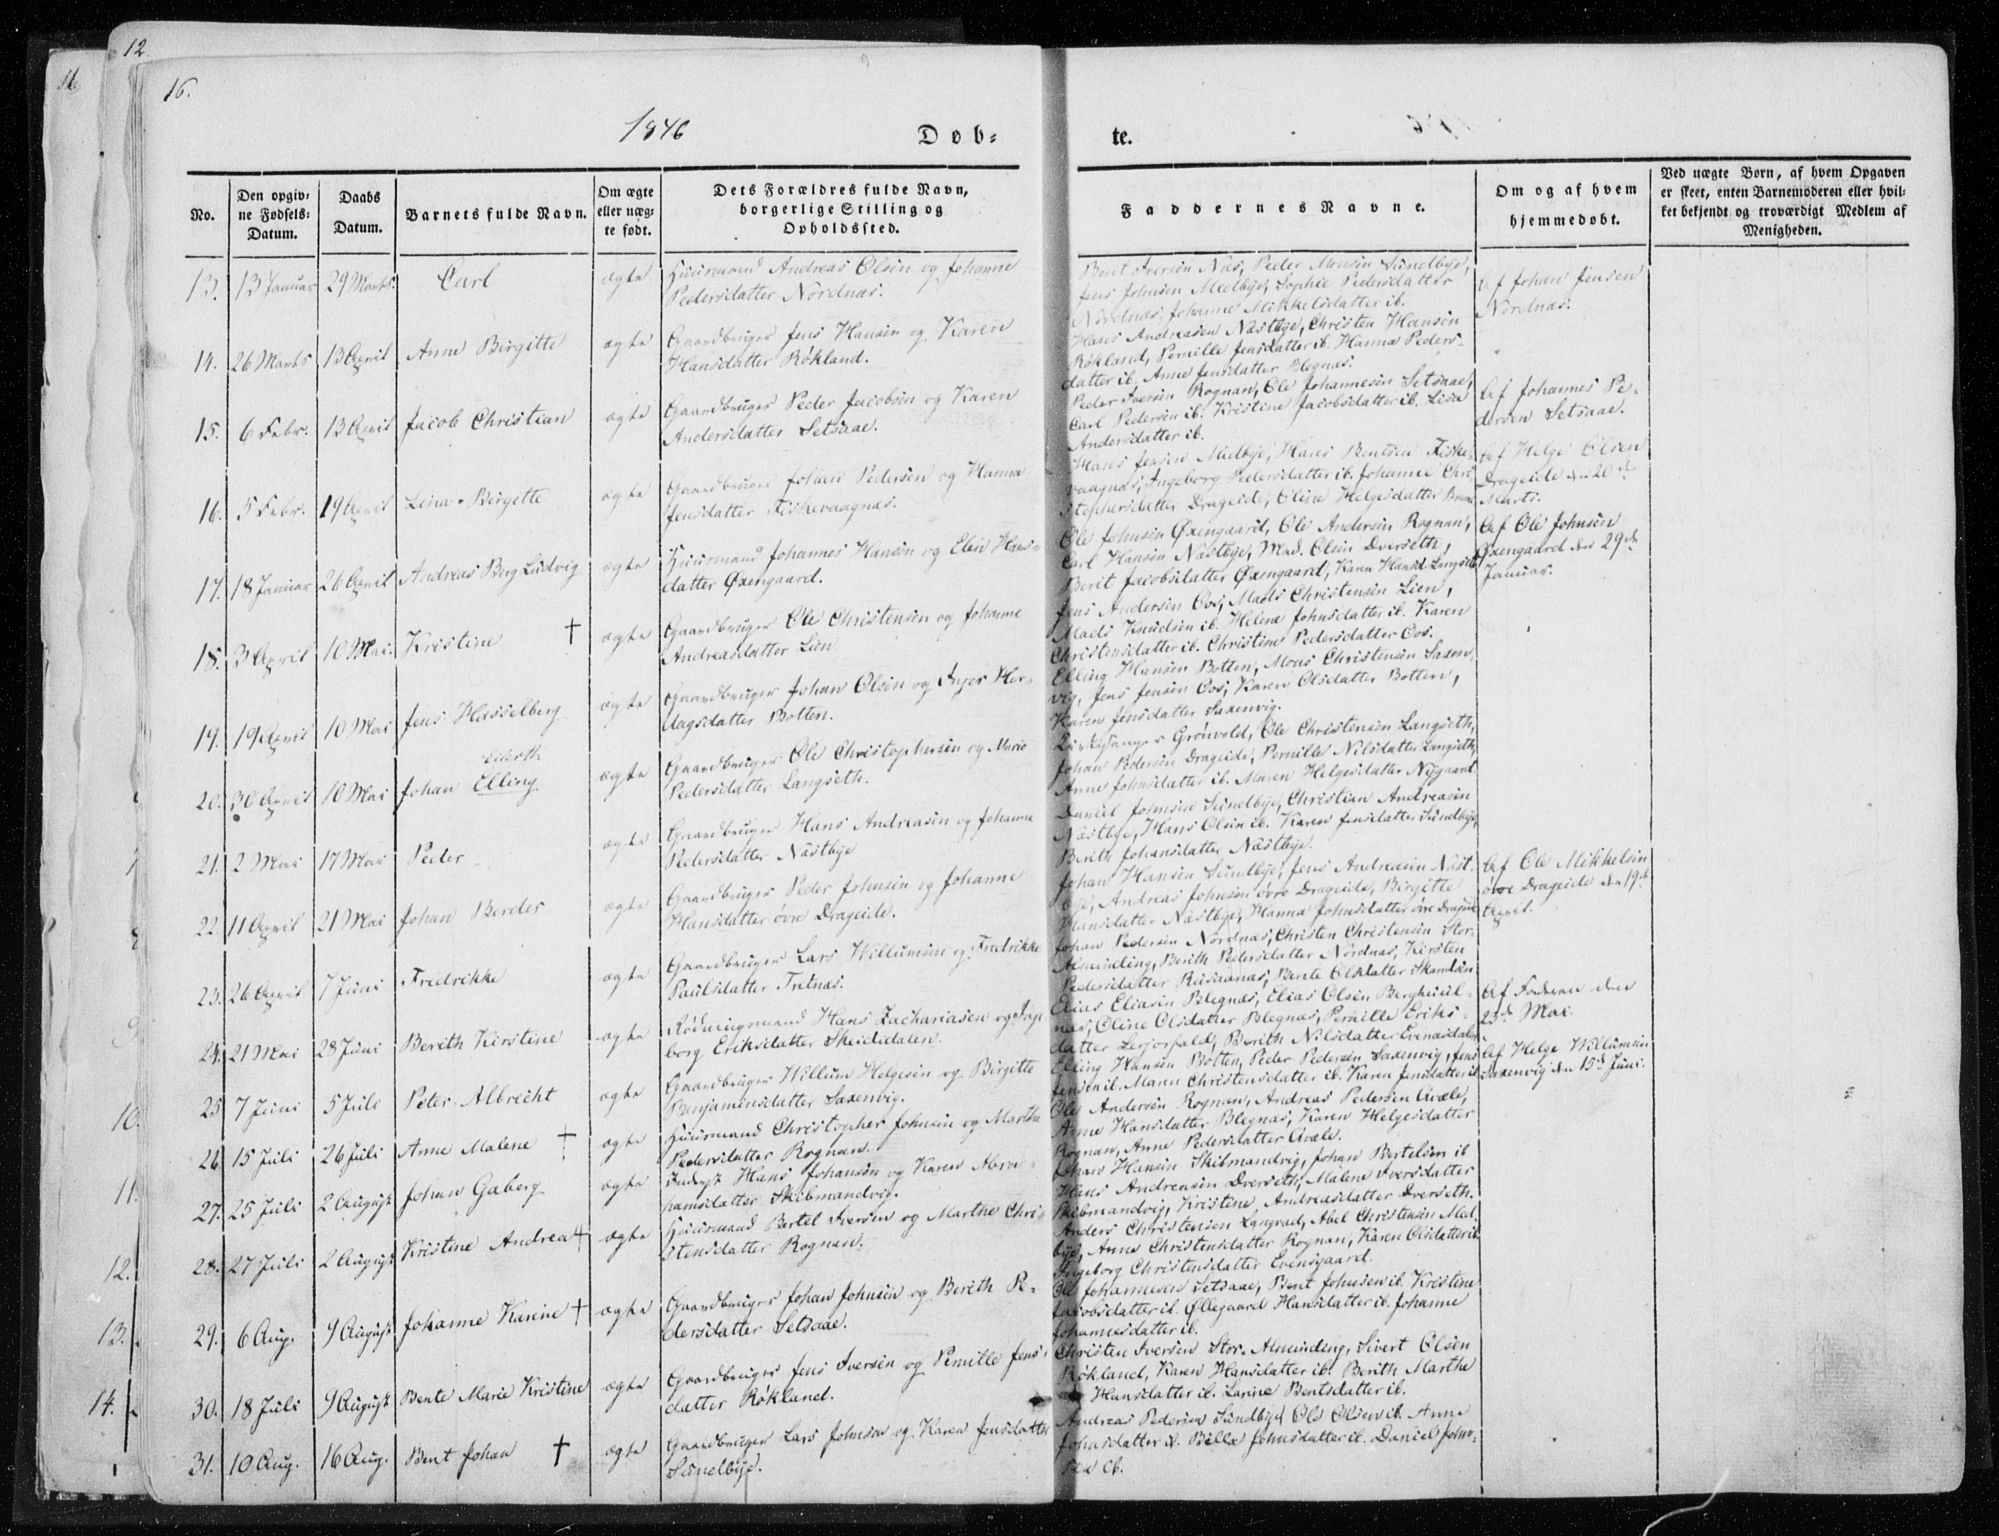 12
16
16.
1846
Døb-
te.
No.
Den opgiv-
ne Fødsels-
Datum.
Daabs
Datum.
Barnets fulde Navn.
Om ægte
eller uæg-
te født.
Dets Forældres fulde Navn,
borgerlige Stilling og
Opholdssted.
Faddernes Navne.
Om og af hvem
hjemmedøbt.
Ved uægte Børn, af hvem Opgaven
er skeet, enten Barnemoderen eller hvil-
ket bekjendt og troværdigt Medlem af
Menigheden.
13. 13 Januar 29 Marts. Carl ægte
Huusmand Andreas Olsen og Johanne
Pedersdatter Nordnæs.
Bent Iversen Næs, Peder Monsen Sundbye,
Jens Johnsen Medbye, Sophie Pedersdatter
Nordnæs, Johanne Mikkelsdatter ib.
Af Johan Jensen
Nordnæs.
14. 26 Marts 13 April Anne Birgitte ægte
Gaardbruger Jens Hansen og Karen
Hansdatter Røkland.
Hans Andreasen Næstbye, Christen Hansen
Røkland, Pernille Jensdatter ib. Hanna Peders-
datter ib. Anne Jensdatter Blegnæs.
15. 6 Febr. 13 April Jacob Christian ægte
Gaardbruger Peder Jacobsen og Karen
Andersdatter Setsaae.
Peder Iversen Rognan, Ole Johannesen Setsaae,
Carl Pedersen ib. Kristine Jacobsdatter ib. Lisa
Andersdatter ib.
Af Johannes Pe-
dersen Setsaae.
16. 5 Febr. 19 April Lina Birgitte ægte
Gaardbruger Johan Pedersen og Hanna
Jensdatter Fiskevaagnæs.
Hans Jensen Medbye, Hans Bentsen Fiske-
vaagnæs, Ingeborg Pedersdatter ib. Johanne Chri-
stophersdatter Drageide, Oline Helgesdatter
Af Helge Olsen
Drageide den 20de
Marts.
17. 18 Januar 26 April Andreas Berg Ludvig ægte
Huusmand Johannes Hansen og Elen Hans-
datter Øxengaard.
Ole Johnsen Øxengaard, Ole Andersen Rognan,
Carl Hansen Næstbye, Mad. Olsen Dverseth,
Berit Jacobsdatter Øxengaard, Karen Hansd. Langseth
Af Ole Johnsen
Øxengaard den 29de
Januar.
18. 3 April 10 Mai. Kristine † ægte
Gaardbruger Ole Christensen og Johanne
Andreasdatter Lien
Jens Andersen Evs, Mads Christensen Lien,
Mads Knudsen ib. Helene Johnsdatter ib. Karen
Christensdatter ib. Christine Pedersdatter Evs.
19. 19 April 10 Mai Jens Hasselberg ægte
Gaardbruger Johan Olsen og Inger Her-
dagsdatter Botten.
Elling Hansen Botten, Mons Christensen Saxen-
vig, Jens Jensen Evs, Karen Olsdatter Botten,
Karen Jensdatter Saxenvig.
20. 30 April 10 Mai Johan Elling ægte
Gaardbruger Ole Christophersen og Maria
Pedersdatter Langseth.
Kirkesanger Grønvold, Ole Christensen Langseth,
Johan Pedersen Drageide, Pernille Nilsdatter Langseth,
Anne Johnsdatter ib. Maren Helgesdatter Nygaard.
21. 2 Mai 17 Mai Peder ægte
Gaardbruger Hans Andreasen og Johanne
Pedersdatter Næstbye
Daniel Johnsen Sundbye, Christian Andreasen
Næstbye, Hans Olsen ib. Karen Jensdatter Sundbye,
Berith Johansdatter Næstbye.
22. 11 April 21 Mai Johan Berder ægte
Gaardbruger Peder Johnsen og Johanne
Hansdatter øvre Drageide.
Johan Hansen Sundbye, Jens Andreasen Næst-
bye, Andreas Johnsen øvre Drageide, Birgitte
Hansdatter Næstbye, Hanna Johnsdatter øvre Drageide
Af Ole Mikkelsen
øvre Drageide den 19de
April.
23. 26 April 7 Juni Fredrikke ægte
Gaardbruger Lars Willumsen og Fredrikke
Paulsdatter Tretnæs.
Johan Pedersen Nordnæs, Christen Christensen Stor-
Alminding, Berith Pedersdatter Nordnæs, Kirsten
Pedersdatter Rusaanæs, Bente Olsdatter
24. 21 Mai 28 Juni Berith Kirstine ægte
Rødningsmand Hans Zachariasen og Inge-
borg Eriksdatter Skeididalen.
Elias Eliasen Blegnæs, Elias Olsen
næs, Oline Olsdatter Blegnæs, Pernille Eriks-
datter, Berith Nilsdatter Evenesdalen
Af Faderen den
25de Mai.
25 7 Juni 5 Juli Peter Albrecht ægte
Gaardbruger Willum Helgesen og Birgitte
Benjaminsdatter Saxenvig.
Elling Hansen Botten, Peder Pedersen Saxenvig, Jens
Jensen ib. Maren Christensdatter ib. Karen Jensdatter ib
Af Helge Willumsen
Saxenvig den 15de Juni.
26. 15 Juli 26 Juli Anne Malene † ægte
Huusmand Christopher Johnsen og Marthe
Pedersdatter Rognan.
Ole Andersen Rognan, Andreas Pedersen
Anne Hansdatter Blegnæs, Karen Helgesdatter
Rognan, Anne Pedersdatter
27. 25 Juli 2 August Johan Gaberg ægte
Inderst Hans Johansen og Karen Abra-
hamsdatter Skibmandvig.
Johan Hansen Skibmandvig, Johan Bertelsen ib
Hans Andreasen Dverseth, Malene Iversdatter
Skibmandvig, Kristine Andreasdatter Dverseth.
28. 27 Juli 2 August Kristine Andrea † ægte
Huusmand Bertel Iversen og Marthe Chri-
stensdatter Rognan.
Anders Christensen Langvad, Abel Christensen Med-
bye, Anne Christensdatter Rognan, Karen Olsdatter ib.
Ingeborg Christensdatter Evensgaard.
29. 6 Aug. 9 August Johanne Karine † ægte
Gaardbruger Johan Johnsen og Berith Pe-
dersdatter Setsaae.
Ole Johannesen Setsaae, Bent Johnsen ib. Kristine
Jacobsdatter ib. Øllegaard Hansdatter ib. Johanne
Johannesdatter ib.
30. 18 Juli 9 August Bente Marie Kristine ægte
Gaardbruger Jens Iversen og Pernille Jens-
datter Røkland.
Christen Iversen Stor-Alminding, Sivert Olsen
Røkland, Karen Hansdatter ib. Berith Marthe
Hansdatter ib. Larine Bentsdatter ib.
31. 10 Aug. 16 Aug. Bent Johan † ægte
Gaardbruger Lars Johnsen og Karen Jensdatter
Sundbye.
Andreas Pedersen Sundbye, Ole Olsen ib. Anne
Johnsdatter ib. Johnsdatter ib. Daniel John-
sen ib.
10.
11.
12.
13.
14.